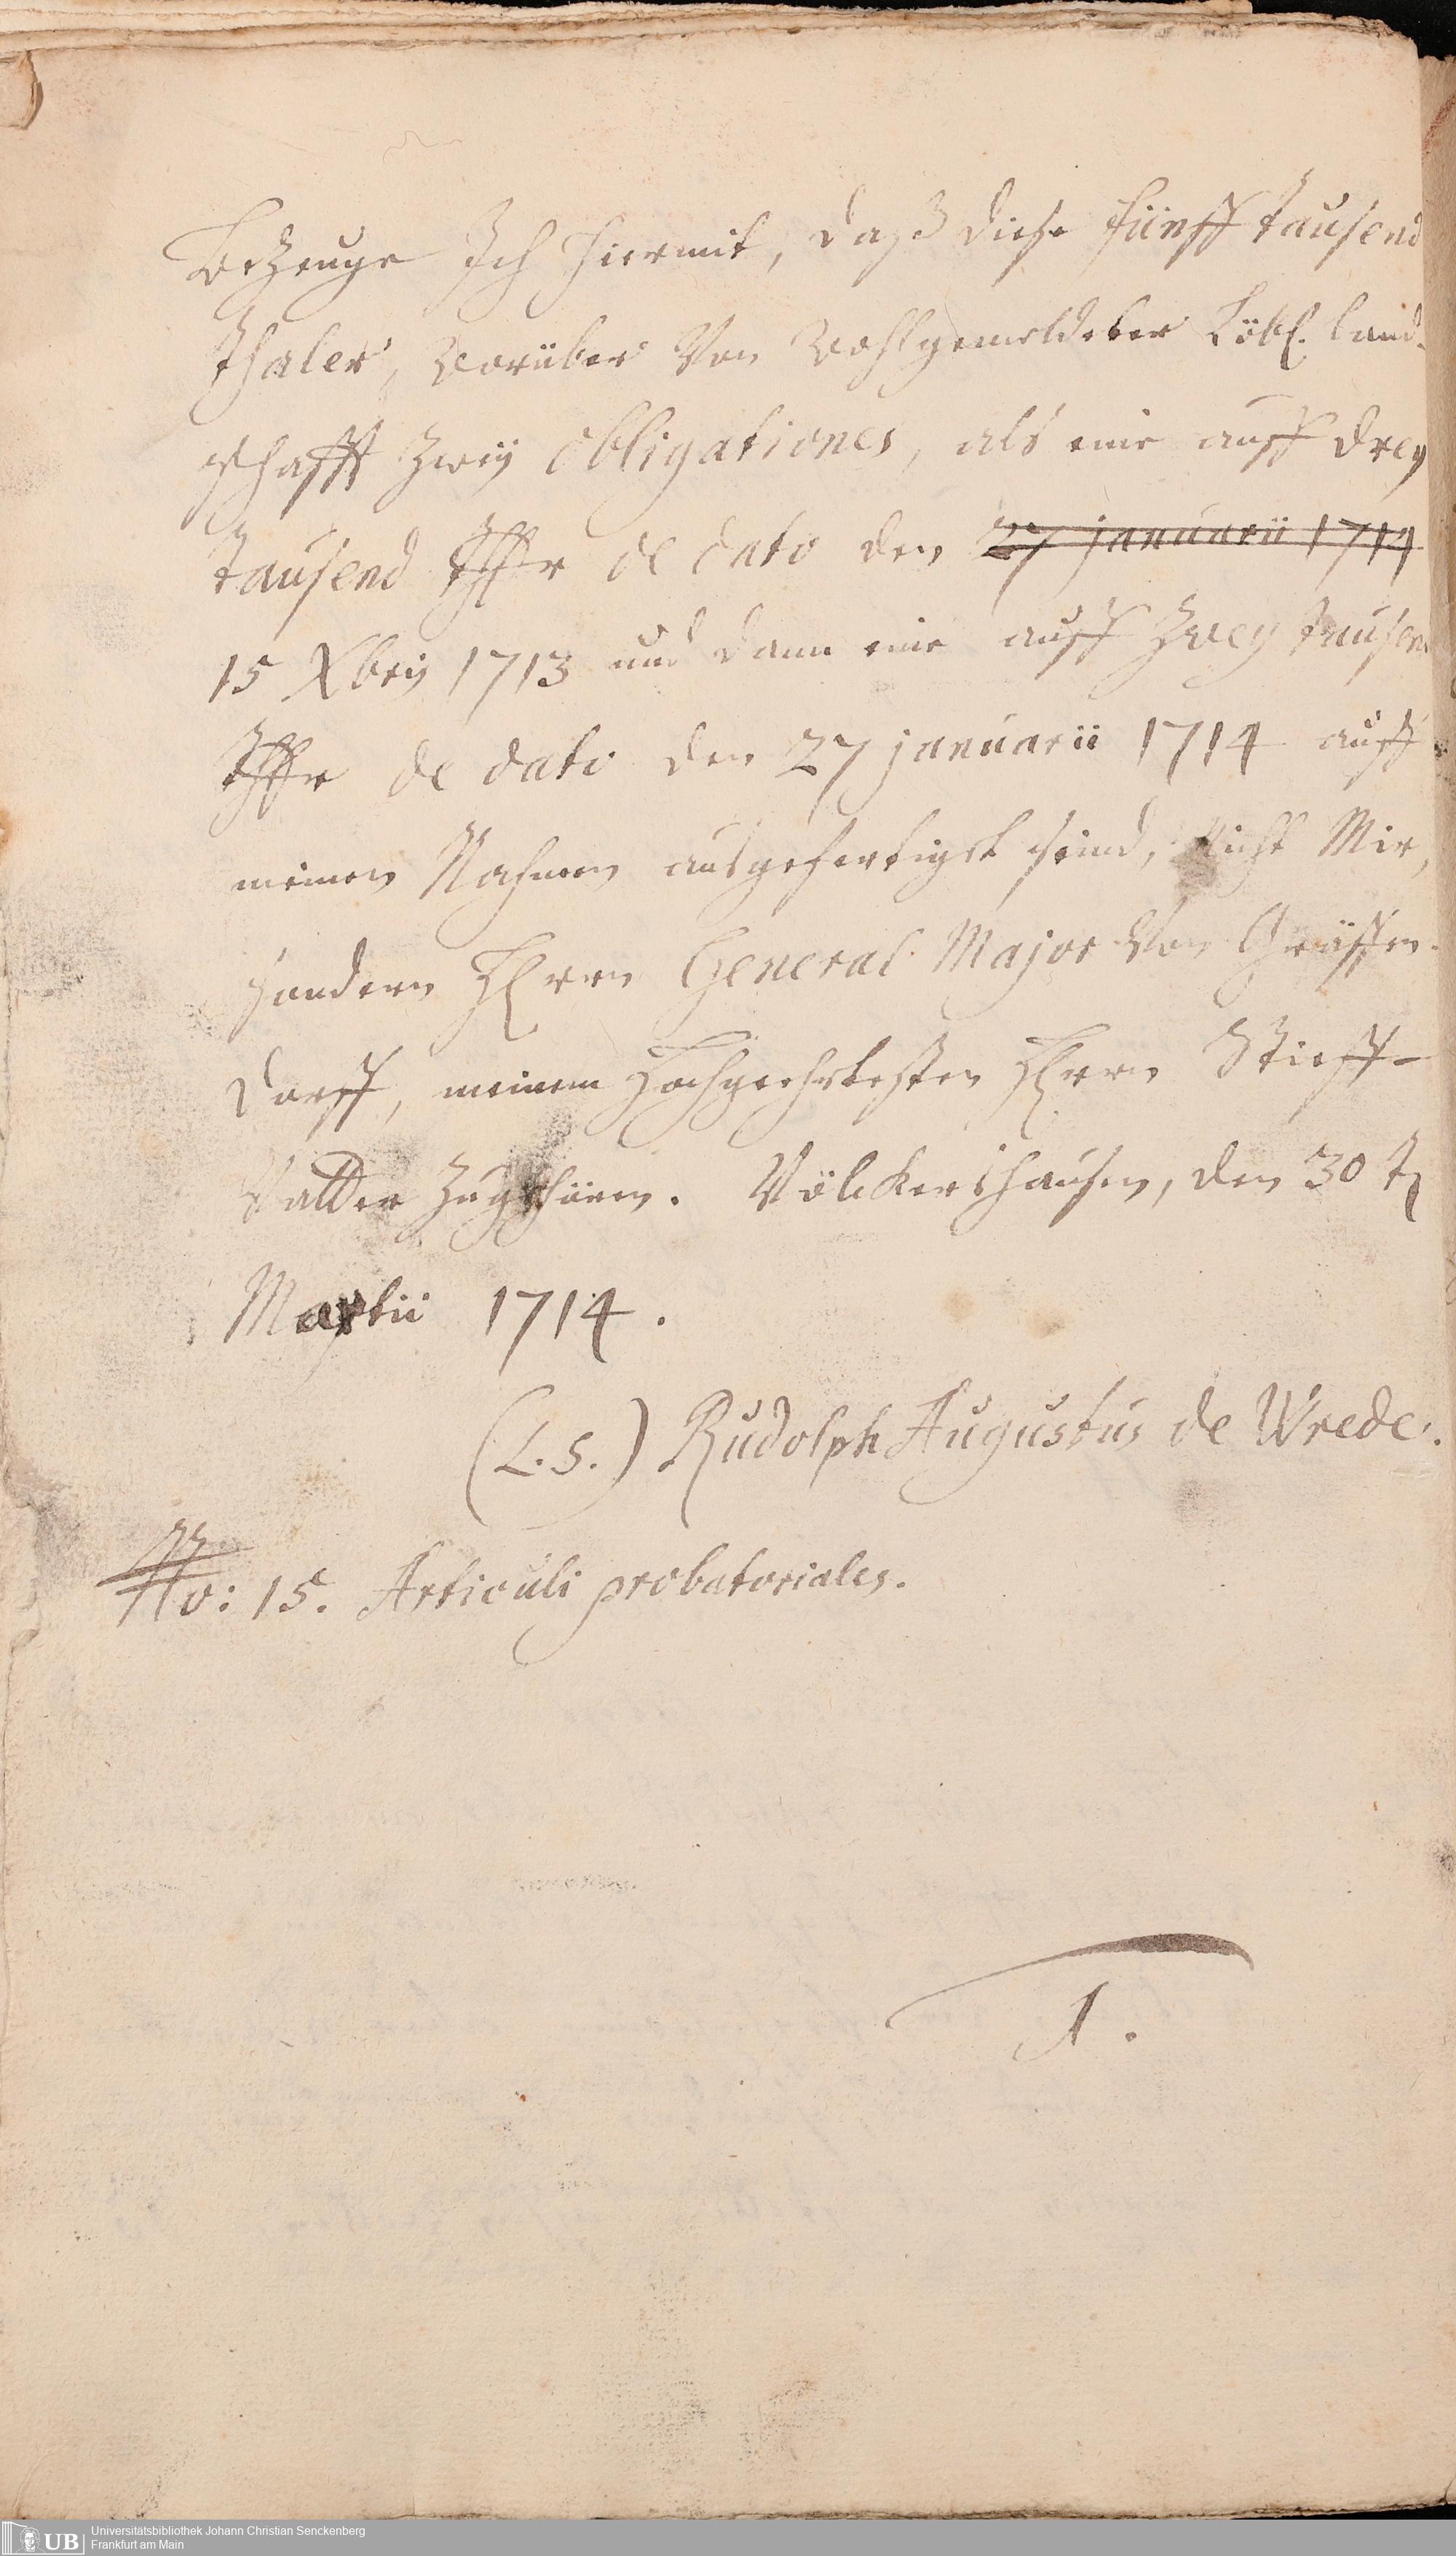 Bezeuge Ich hiermit, daß diese fünff tausend
Thaler, worüber von wohlgemeldeter Löbl. Land-
schafft zweÿ obligationes, als eine auff dreÿ
tausend Thlr de dato den 27 januarii 1714
15 Xbris 1713 und dann eine auff zweÿ tausend
Thlr de dato den 27 januarii 1714 auff
meinen Nahmen ausgefertiget seind, nicht Mir,
sondern Herrn General Major von Gräffen-
dorff, meinem Hochgeehrtesten Herrn Stieff-
Vatter zugehören. Völckershausen, den 30 t.
Martii 1714.
(L.S.) Rudolph Augustus de Wrede.
No: 15. Articuli probatoriales.
1.
UB Universitätsbibliothek Johann Christian Senckenberg
Frankfurt am Main